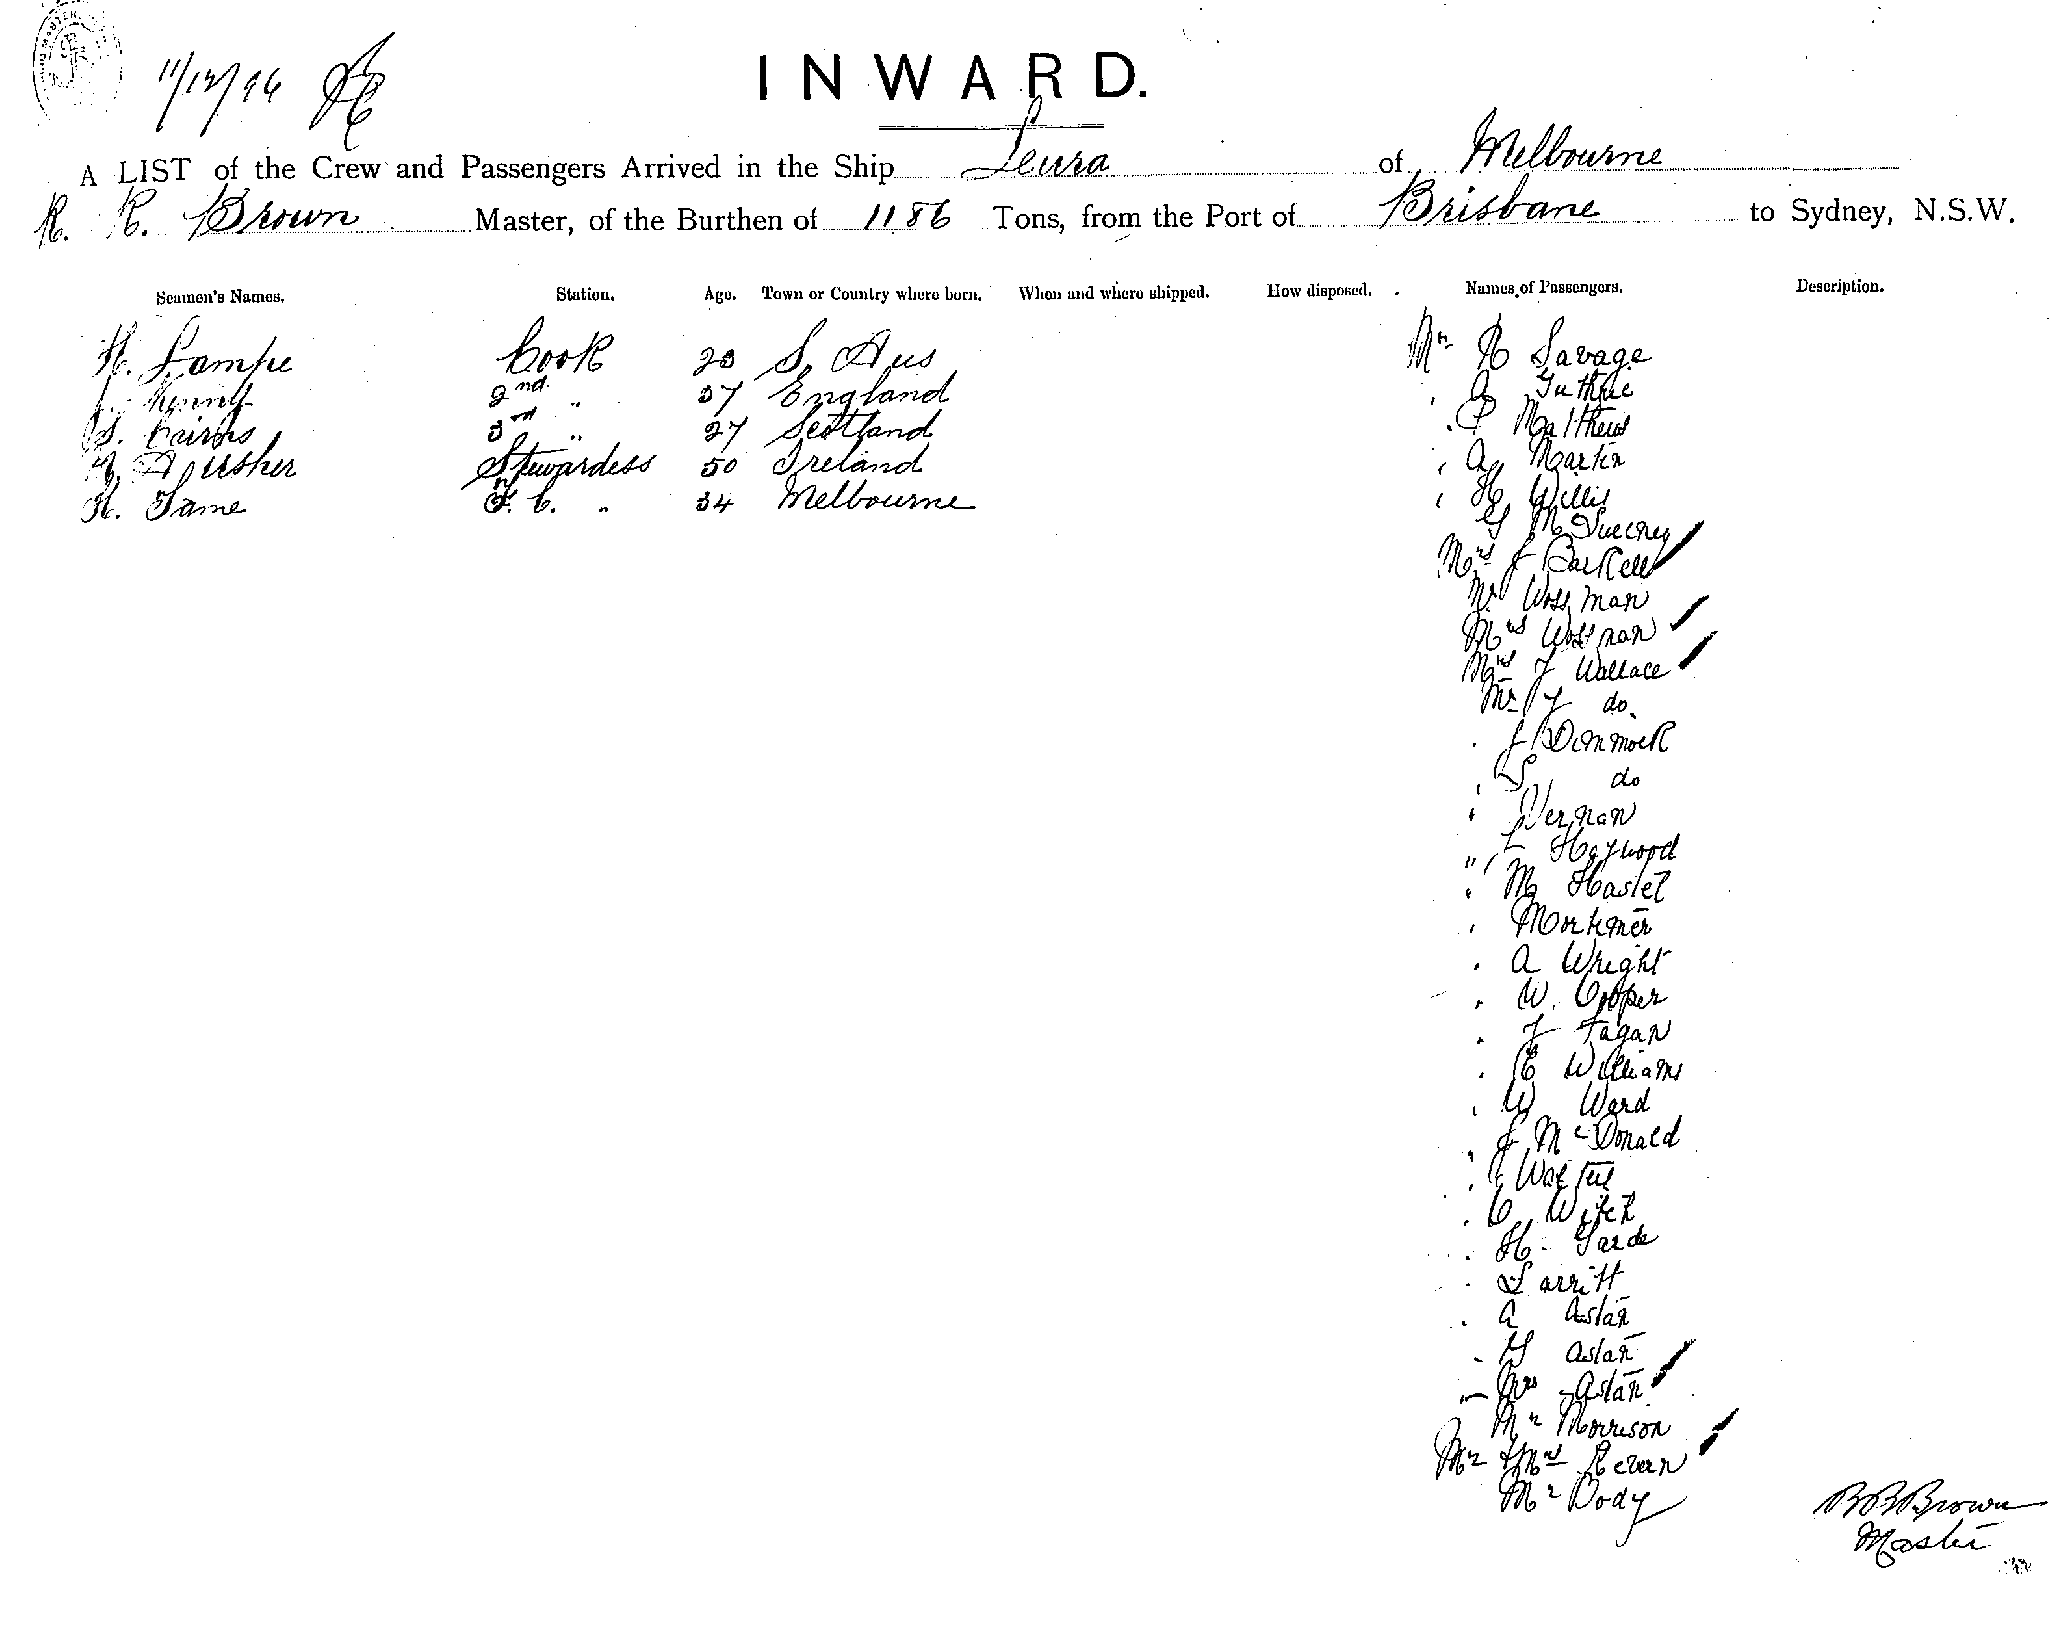 11/12/96
INWARD.
A LIST of the Crew and Passengers Arrived in the Ship Leura of Melbourne
R. R. Brown Master, of the Burthen of 1186 Tons, from the Port of Brisbane to Sydney, N.S.W.
Seamen's Names. Station. Age. Town or Country where born. When and where shipped. How disposed. Names of Passengers. Description.
H. Lampe Cook 23 S. Aus Mr R Savage
2nd " 37 England A Guthrie
S. Cairns 3rd " 27 Scotland P Matthews
Stewardess 50 Ireland A Martin
H. Same F. C. " 34 Melbourne H Willis
G McSweeney
Mrs J
Mr Wossman
Mrs Wossnan
Mrs J Wallace
Mr J do.
J Dommock
S do
Vernan
" L Haywood
M Haslet
Mortimer
A Wright
W. Cooper
J Fagan
E Williams
W Ward
J McDonald
C
H. Garde
Larritt
A Astan
G Astan
" Mrs Astan
Mr Morrison
Mr & Mrs
Mr Body
Brown
Master